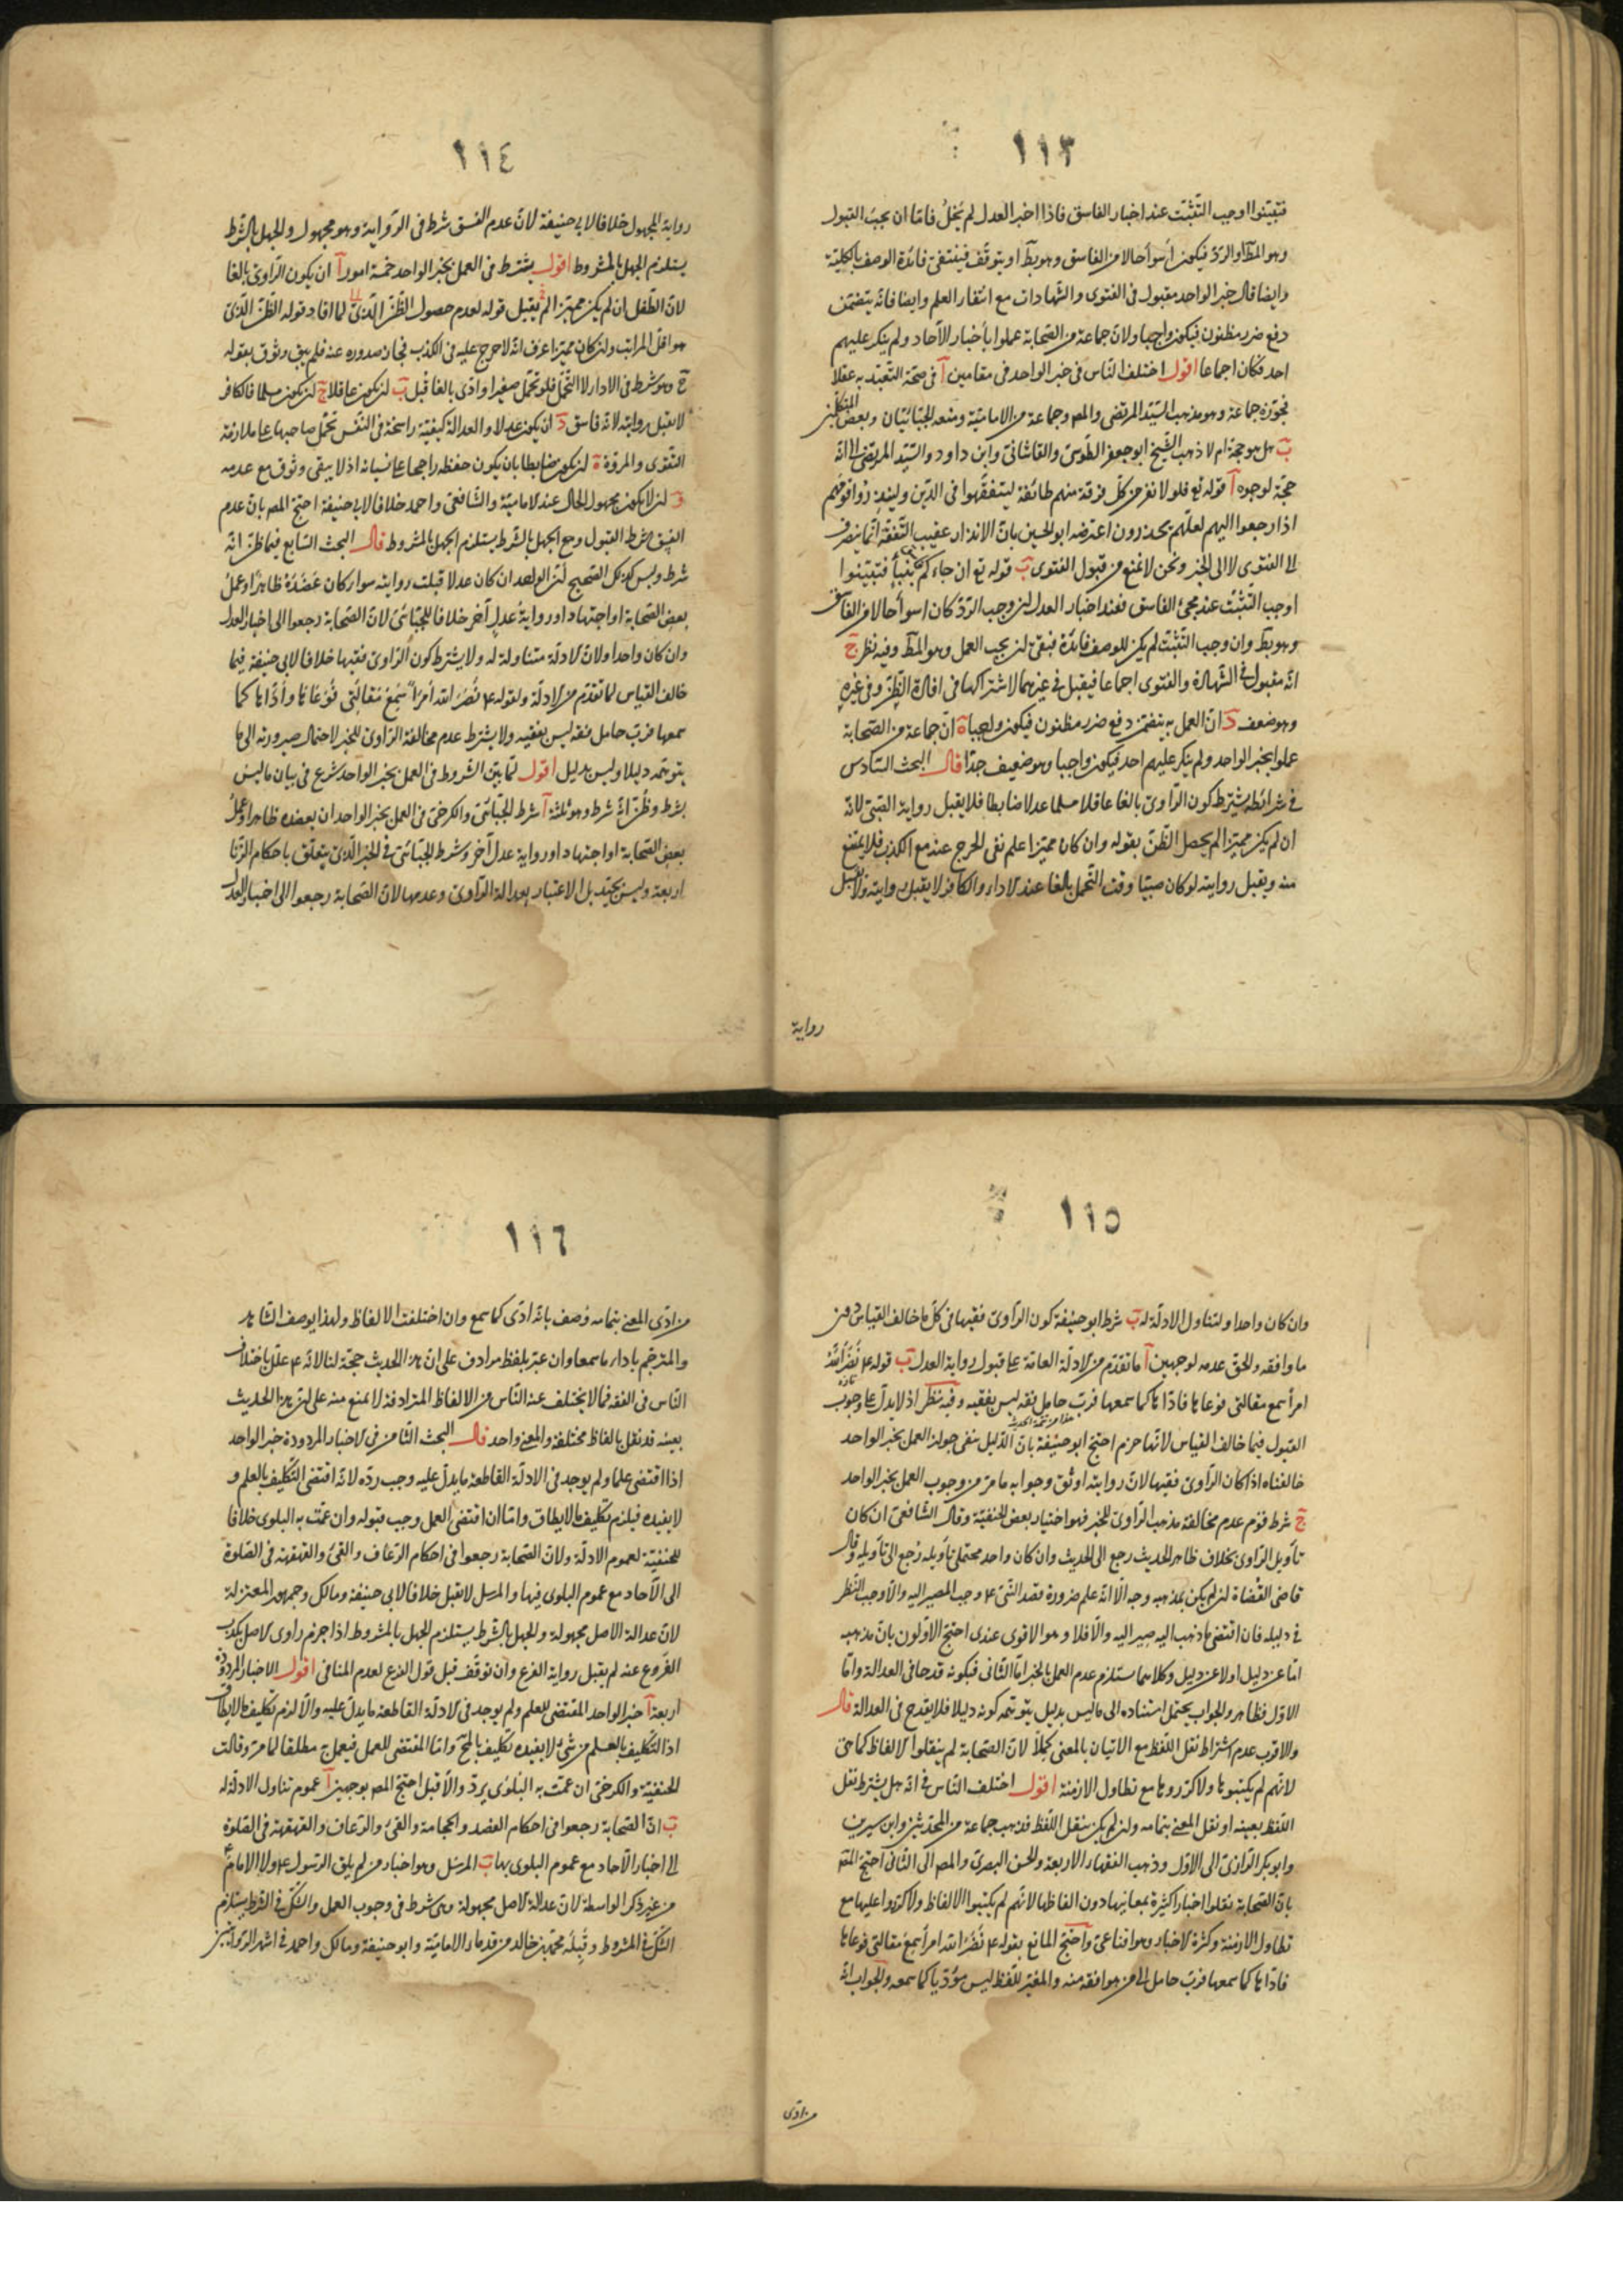 ١١٣
فتبيّنوا اوجب التّثبّت عند اخبار الفاسق فاذا اخبر العدل لم يَخلُ فامّا ان يجب القبول
وهو المط او الردّ فيكون أسوأ حالا من الفاسق وهو بط او يتوقّف فينتفى فائدة الوصف بالكلية
وايضا فان خبر الواحد مقبول فى الفتوى والشّهادات مع انتفاء العلم وايضا فانّه يتضمّن
دفع ضرر مظنون فيكون واجبا ولانّ جماعة من الصّحابة عملوا بأخبار الآحاد ولم ينكر عليهم
احد فكان اجماعا اقول اختلف النّاس فى خبر الواحد فى مقامين آ فى صحّة التّعبّد به عقلا
فجوّزه جماعة وهو مذهب السّيّد المرتضى والمص وجماعة من الاماميّة ومنعه الجبّائيّان وبعض المتكلّمين
ب هل هو حجة ام لا ذهب الشّيخ ابو جعفر الطّوسى والقاشانى وابن داود والسّيّد المرتضى الى انّه
حجّة لوجوه آ قوله تع فلولا نفر من كلّ فرقة منهم طائفة ليتفقّهوا فى الدّين ولينذروا قومهم
اذا رجعوا اليهم لعلّهم يحذرون اعترضه ابو الحسين بانّ الانذار عقيب التّفقّه انّما ينصرف
الى الفتوى لا الى الخبر ونحن لا نمنع من قبول الفتوى ب قوله تع ان جاءكم بنبأٍ فتبيّنوا
اوجب التّثبّت عند مجىء الفاسق فعند اخبار العدل ان وجب الرّدّ كان اسوأ حالا من الفاسق
وهو بط وان وجب التّثبّت لم يكن للوصف فائدة فبقى ان يجب العمل وهو المط وفيه نظر ج
انّه مقبول فى الشّهادة والفتوى اجماعا فيقبل فى غيرهما لاشتراكهما فى افادة الظّنّ وفى غيره
وهو ضعف د انّ العمل به يتضمّن دفع ضرر مظنون فيكون واجبا ه انّ جماعة من الصّحابة
عملوا بخبر الواحد ولم ينكر عليهم احد فيكون واجبا وهو ضعيف جدّا قال البحث السّادس
فى شرائطه يشترط كون الرّاوىّ بالغا عاقلا مسلما عدلا ضابطا فلا يقبل رواية الصّبىّ لانّه
ان لم يكن مميّزا لم يحصل الظّنّ بقوله وان كان مميّزا علم نفى الحرج عنه مع الكذب فلا يمتنع
منه ويقبل روايته لو كان صبيّا وقت التّحمّل بالغا عند الاداء والكافر لا يقبل روايته ولا يقبل
رواية
١١٤
رواية المجهول خلافا لابى حنيفة لانّ عدم الفسق شرط فى الرّواية وهو مجهول والجهل بالشّرط
يستلزم الجهل بالمشروط اقول يشترط فى العمل بخبر الواحد خمسة امور آ ان يكون الرّاوىّ بالغا
لانّ الطّفل ان لم يكن مميّزا لم يقبل قوله لعدم حصول الظّنّ الّذى لما افاد قوله الظّنّ الّذى
هو اقلّ المراتب وان كان مميّزا عرف انّه لا حرج عليه فى الكذب فجاز صدوره عنه فلم يبق وثوق بقوله
ح وهو شرط فى الاداء لا التّحمّل فلو تحمّل صغيرا وادّى بالغا قُبِل ب ان يكون عاقلا ج ان يكون مسلما فالكافر
لا يقبل روايته لانّه فاسق د ان يكون عدلا والعدالة كيفيّة راسخة فى النّفس تحمل صاحبها على ملازمة
التّقوى والمروّة ه ان يكون ضابطا بان يكون حفظه راجحا على نسيانه اذ لا يبقى وثوق مع عدمه
و ان لا يكون مجهول الحال عند الاماميّة والشّافعى واحمد خلافا لابى حنيفة احتجّ المص بانّ عدم
الفسق شرط القبول وح الجهل بالشّرط يستلزم الجهل بالمشروط قال البحث السّابع فيما ظنّ انّه
شرط وليس كذلك الصّحيح انّ الواحد ان كان عدلا قبلت روايته سواء كان عَضَدَهُ ظاهرٌ او عملُ
بعض الصّحابة او اجتهاد او روايةُ عدلٍ آخر خلافا للجبّائىّ لانّ الصّحابة رجعوا الى اخبار العدل
وان كان واحدا ولانّ الادلّة متناولة له ولا يشترط كون الرّاوىّ فقيها خلافا لابى حنيفة فيما
خالف القياس لما تقدّم من الادلّة ولقوله ع نُضَرَ الله أمرَأً سَمِعَ مَقالَتى فَوَعَاهَا وأدّاها كما
سمعها فربّ حامل فقه ليس بفقيه ولا يشترط عدم مخالفة الرّاوىّ للخبر لاحتمال صيرورته الى ما
يتوهّمه دليلا وليس بدليل اقول لمّا بيّن الشّروط فى العمل بخبر الواحد شرع فى بيان ما ليس
بشرط وظُنّ انّه شرط وهو ثلثة آ شرط الجبّائىّ والكرخىّ فى العمل بخبر الواحد ان يعضده ظاهر او عملُ
بعض الصّحابة او اجتهاد او رواية عدل آخر وشرط الجبّائىّ فى الخبر الّذى يتعلّق باحكام الزّنا
اربعة وليس بجيّد بل الاعتبار بعدالة الرّاوىّ وعدمها لانّ الصّحابة رجعوا الى اخبار العدل
١١٥
وان كان واحدا ولتناول الادلّة له ب شرط ابو حنيفة كون الرّاوىّ فقيها فى كلّ ما خالف القياس دون
ما وافقه والحقّ عدمه لوجهين آ ما تقدّم من الادلّة العامّة على قبول رواية العدل ب قوله ع نَضَّرَ اللهُ
امرأ سمع مقالتى فوعاها فادّاها كما سمعها فربّ حامل فقه ليس بفقيه وفيه نظر اذ لا يدلّ على وجوب
القبول فيما خالف القياس لانّها حزم احتجّ ابو حنيفة بانّ الدّليل ينفى جواز العمل بخبر الواحد
خالفناه اذا كان الرّاوىّ فقيها لانّ روايته اوثق وجوابه ما مرّ من وجوب العمل بخبر الواحد
ج شرط قوم عدم مخالفة مذهب الرّاوىّ للخبر فهو اختيار بعض الحنفيّة وقال الشّافعىّ ان كان
تأويل الرّاوىّ بخلاف ظاهر الحديث رجع الى الحديث وان كان واحد محتملى تأويله رُجع الى تأويله وقال
قاضى القُضاة ان لم يكن لمذهبه وجه الّا انّه علم ضرورة قصد النّبىّ ع وجب المصير اليه والّا وجب النّظر
فى دليله فان اقتضى ما ذهب اليه صير اليه والّا فلا وهو الاقوى عندى احتجّ الاوّلون بانّ مذهبه
امّا عن دليل او لا عن دليل وكلاهما يستلزم عدم العمل بالخبر امّا الثّانى فبكونه قدحا فى العدالة وامّا
الاوّل فظاهر والجواب يحتمل استناده الى ما ليس بدليل يتوهّمه كونه دليلا فلا يقدح فى العدالة قال
والاقرب عدم اشتراط نقل اللّفظ مع الاتيان بالمعنى كملاً لانّ الصّحابة لم ينقلوا الالفاظ كما هى
لانّهم لم يكتبوها ولا كرّروها مع تطاول الازمنة اقول اختلف النّاس فى انّه هل يشترط نقل
اللّفظ بعينه او نقل المعنى بتمامه وان لم يكن بنقل اللّفظ فذهب جماعة من المحدّثين وابن سيرين
وابو بكر الرّازى الى الاوّل وذهب الفقهاء الاربعة والحسن البصرىّ والمص الى الثّانى احتجّ المص
بانّ الصّحابة نقلوا اخبارا كثيرة بمعانيها دون الفاظها لانّهم لم يكتبوا الالفاظ ولا كرّروا عليها مع
تطاول الازمنة وكثرة الاخبار وهو اقناعىّ واحتجّ المانع بقوله ع نُضَّرَ الله امرأ سمع مقالتى فوعاها
فادّاها كما سمعها فربّ حامل الى من هو افقه منه والمغيّر للّفظ ليس مؤدّيا كما سمعه والجواب انّ
من ادّى
١١٦
من ادّى المعنى بتمامه وُصف بانّه ادّى كما سمع وان اختلفت الالفاظ ولهذا يوصف الشّاهد
والمترجم باداء ما سمعا وان عبّر بلفظ مرادف على انّ هذا الحديث حجّة لنا لانّه ع علّل باختلاف
النّاس فى الفقه فما لا يختلف عنه النّاس من الالفاظ المترادفة لا يمنع منه على انّ هذا الحديث
بعينه قد نقل بالفاظ مختلفة والمعنى واحد قال البحث الثّامن فى الاخبار المردودة خبر الواحد
اذا اقتضى علما ولم يوجد فى الادلّة القاطعة ما يدلّ عليه وجب ردّه لانّه اقتضى التّكليف بالعلم و
لا يفيده فيلزم تكليف ما لا يطاق وامّا ان اقتضى العمل وجب قبوله وان عمّت به البلوى خلافا
للحنفيّة لعموم الادلّة ولانّ الصّحابة رجعوا فى احكام الرّعاف والقىء والقهقهة فى الصّلوة
الى الآحاد مع عموم البلوى فيها والمرسل لا يقبل خلافا لابى حنيفة ومالك وجمهور المعتزلة
لانّ عدالة الاصل مجهولة والجهل بالشّرط يستلزم الجهل بالمشروط اذا جزم راوى الاصل بكذب
الفروع عنه لم يقبل رواية الفرع وان توقّف قبل قول الفرع لعدم المنافى اقول الاخبار المردودة
اربعة آ خبر الواحد المقتضى للعلم ولم يوجد فى الادلّة القاطعة ما يدلّ عليه والّا لزم تكليف ما لا يطاق
اذ التّكليف بالعلم من شىء لا يفيده تكليف بالمح وامّا المقتضى للعمل فيعمل به مطلقا لما مرّ وقالت
الحنفيّة والكرخىّ ان عمّت به البلوى يردّ والّا قبل احتجّ المص بوجهين آ عموم تناول الادلّة له
ب انّ الصّحابة رجعوا فى احكام الفصد والحجامة والقىء والرّعاف والقهقهة فى الصّلوة
الى اخبار الآحاد مع عموم البلوى بها ب المرسل وهو اخبار من لم يلق الرّسول ع ولا الامام ع
من غير ذكر الواسطة لانّ عدالة الاصل مجهولة وهى شرط فى وجوب العمل والشّكّ فى الشّرط يستلزم
الشّكّ فى المشروط وقَبِلَه محمّد بن خالد من قدماء الاماميّة وابو حنيفة ومالك واحمد فى اشهر الرّوايتين